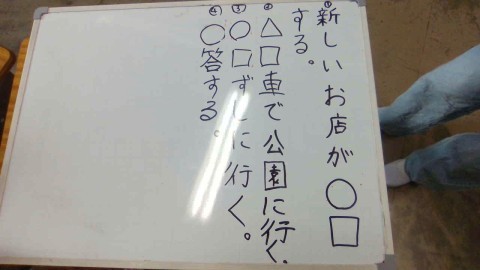 ①新しいお店が○□
する。
②△□車で公園に行く。
③○□ずしに行く。
④○答する。